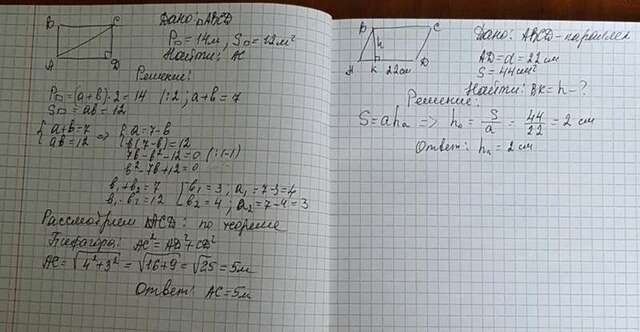 B C
A D
Дано: ▭ABCD
P▭ = 14м, S▭ = 12м²
Найти: AC
Решение:
P▭ = (a+b)·2 = 14 |:2; a+b = 7
S▭ = ab = 12
{a+b=7 => {a=7-b
{ab=12 {b(7-b)=12
7b-b²-12=0 |:(-1)
b²-7b+12=0
b₁+b₂=7 [b₁=3; a₁=7-3=4
b₁·b₂=12 [b₂=4; a₂=7-4=3
Рассмотрим △ACD: по теореме
Пифагора: AC² = AD²+CD²
AC = √4²+3² = √16+9 = √25 = 5м
Ответ: AC=5м
B C
h
A K 22см D
Дано: ABCD-параллел
AD=a=22см
S=44см²
Найти: BK=h-?
Решение:
S=ahₐ => hₐ = S/a = 44/22 = 2 см
Ответ: hₐ=2см